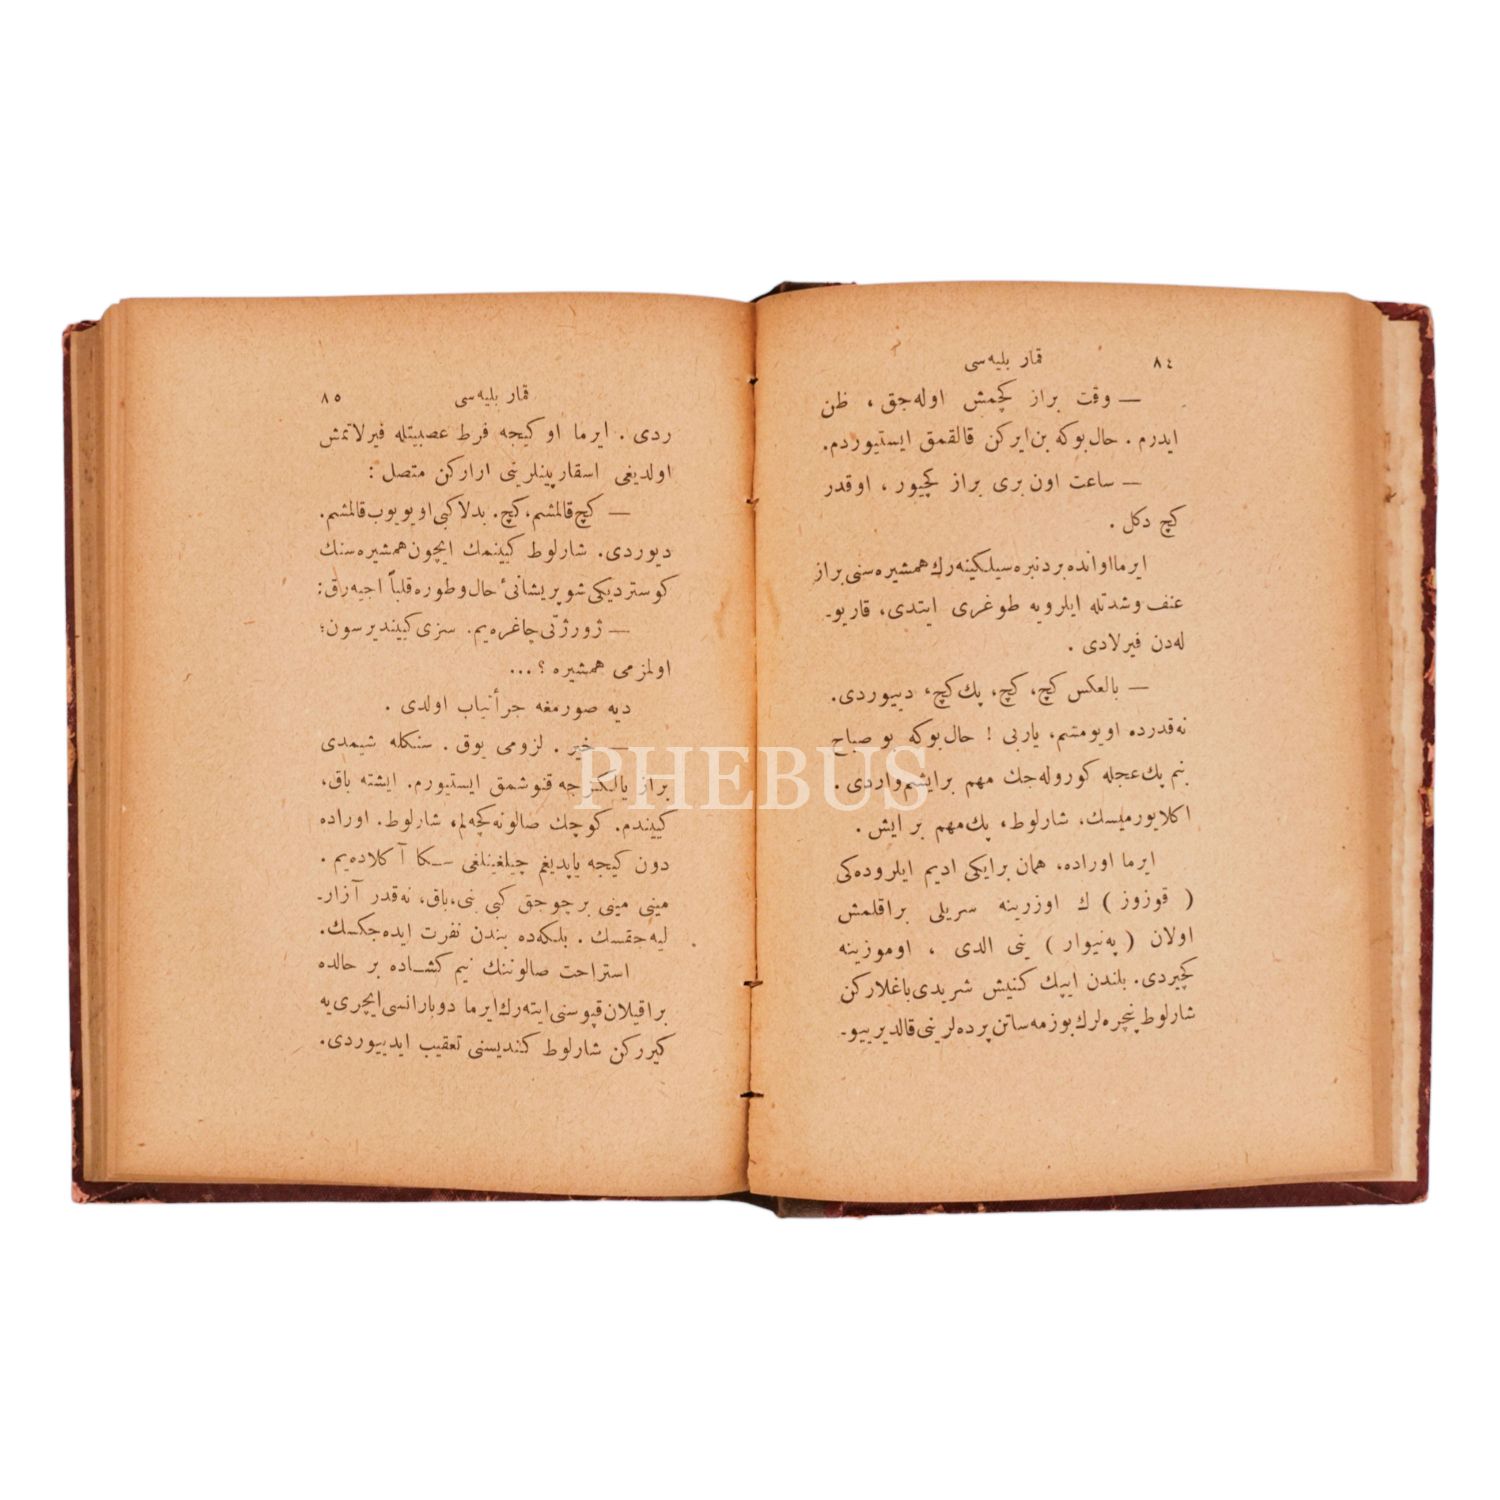 ٨٤
قمار بليه‌سی
— وقت براز كچمش اوله‌جق، ظن
ايدرم. حال‌بوكه بن‌ايركن قالقمق ايستيوردم.
— ساعت اون بری براز كچيور، اوقدر
كچ دكل.
ايرما اوانده بردنبره سيلكينه‌رك همشيره‌سنی براز
عنف و شدتله ايلرويه طوغری ايتدی، قاريو-
له‌دن فيرلادی.
— بالعكس كچ، كچ، پك كچ، دييوردی.
نه‌قدرده اويومشم، ياربی! حال‌بوكه بو صباح
بنم پك عجله كوروله‌جك مهم برايشم واردی.
اكلايورميسك، شارلوط، پك مهم بر ايش.
ايرما اوراده، همان برايكی اديم ايلروده‌كی
(قوزوز) ك اوزرينه سريلی براقلمش
اولان (په‌نيوار) ينی الدی، اوموزينه
كچيردی. بلندن ايپك كنيش شريدی باغلاركن
شارلوط پنچره‌لرك بوزمه ساتن پرده‌لرينی قالديرييو-
قمار بليه‌سی
٨٥
ردی. ايرما او كيجه فرط عصبيتله فيرلاتمش
اولديغی اسقارپينلرينی ارارکن متصل:
— كچ قالمشم، كچ. بدلا كبی اويويوب قالمشم.
ديوردی. شارلوط كيينمك ايچون همشيره‌سنك
كوسترديكی شو پريشانیٔ حال و طوره قلباً اجيه‌رق:
— ژورژتی چاغره‌يم. سزی كيينديرسون؛
اولمزمی همشيره؟...
ديه صورمغه جرأتياب اولدی.
— خير. لزومی يوق. سنكله شيمدی
براز يالكزجه قنوشمق ايستيورم. ايشته باق،
كييندم. كوچك صالونه كچه‌لم، شارلوط. اوراده
دون كيجه ياپديغم چيلغينلغی سكا آكلاده‌يم.
مينی مينی بر چوجق كبی بنی، باق، نه‌قدر آزار-
ليه‌جقسك. بلكه‌ده بندن نفرت ايده‌جكسك.
استراحت صالوننك نيم كشاده بر حالده
براقيلان قپوسنی ايته‌رك ايرما دوبارانسی ايچری‌يه
كيرركن شارلوط كنديسنی تعقيب ايدييوردی.
PHEBUS